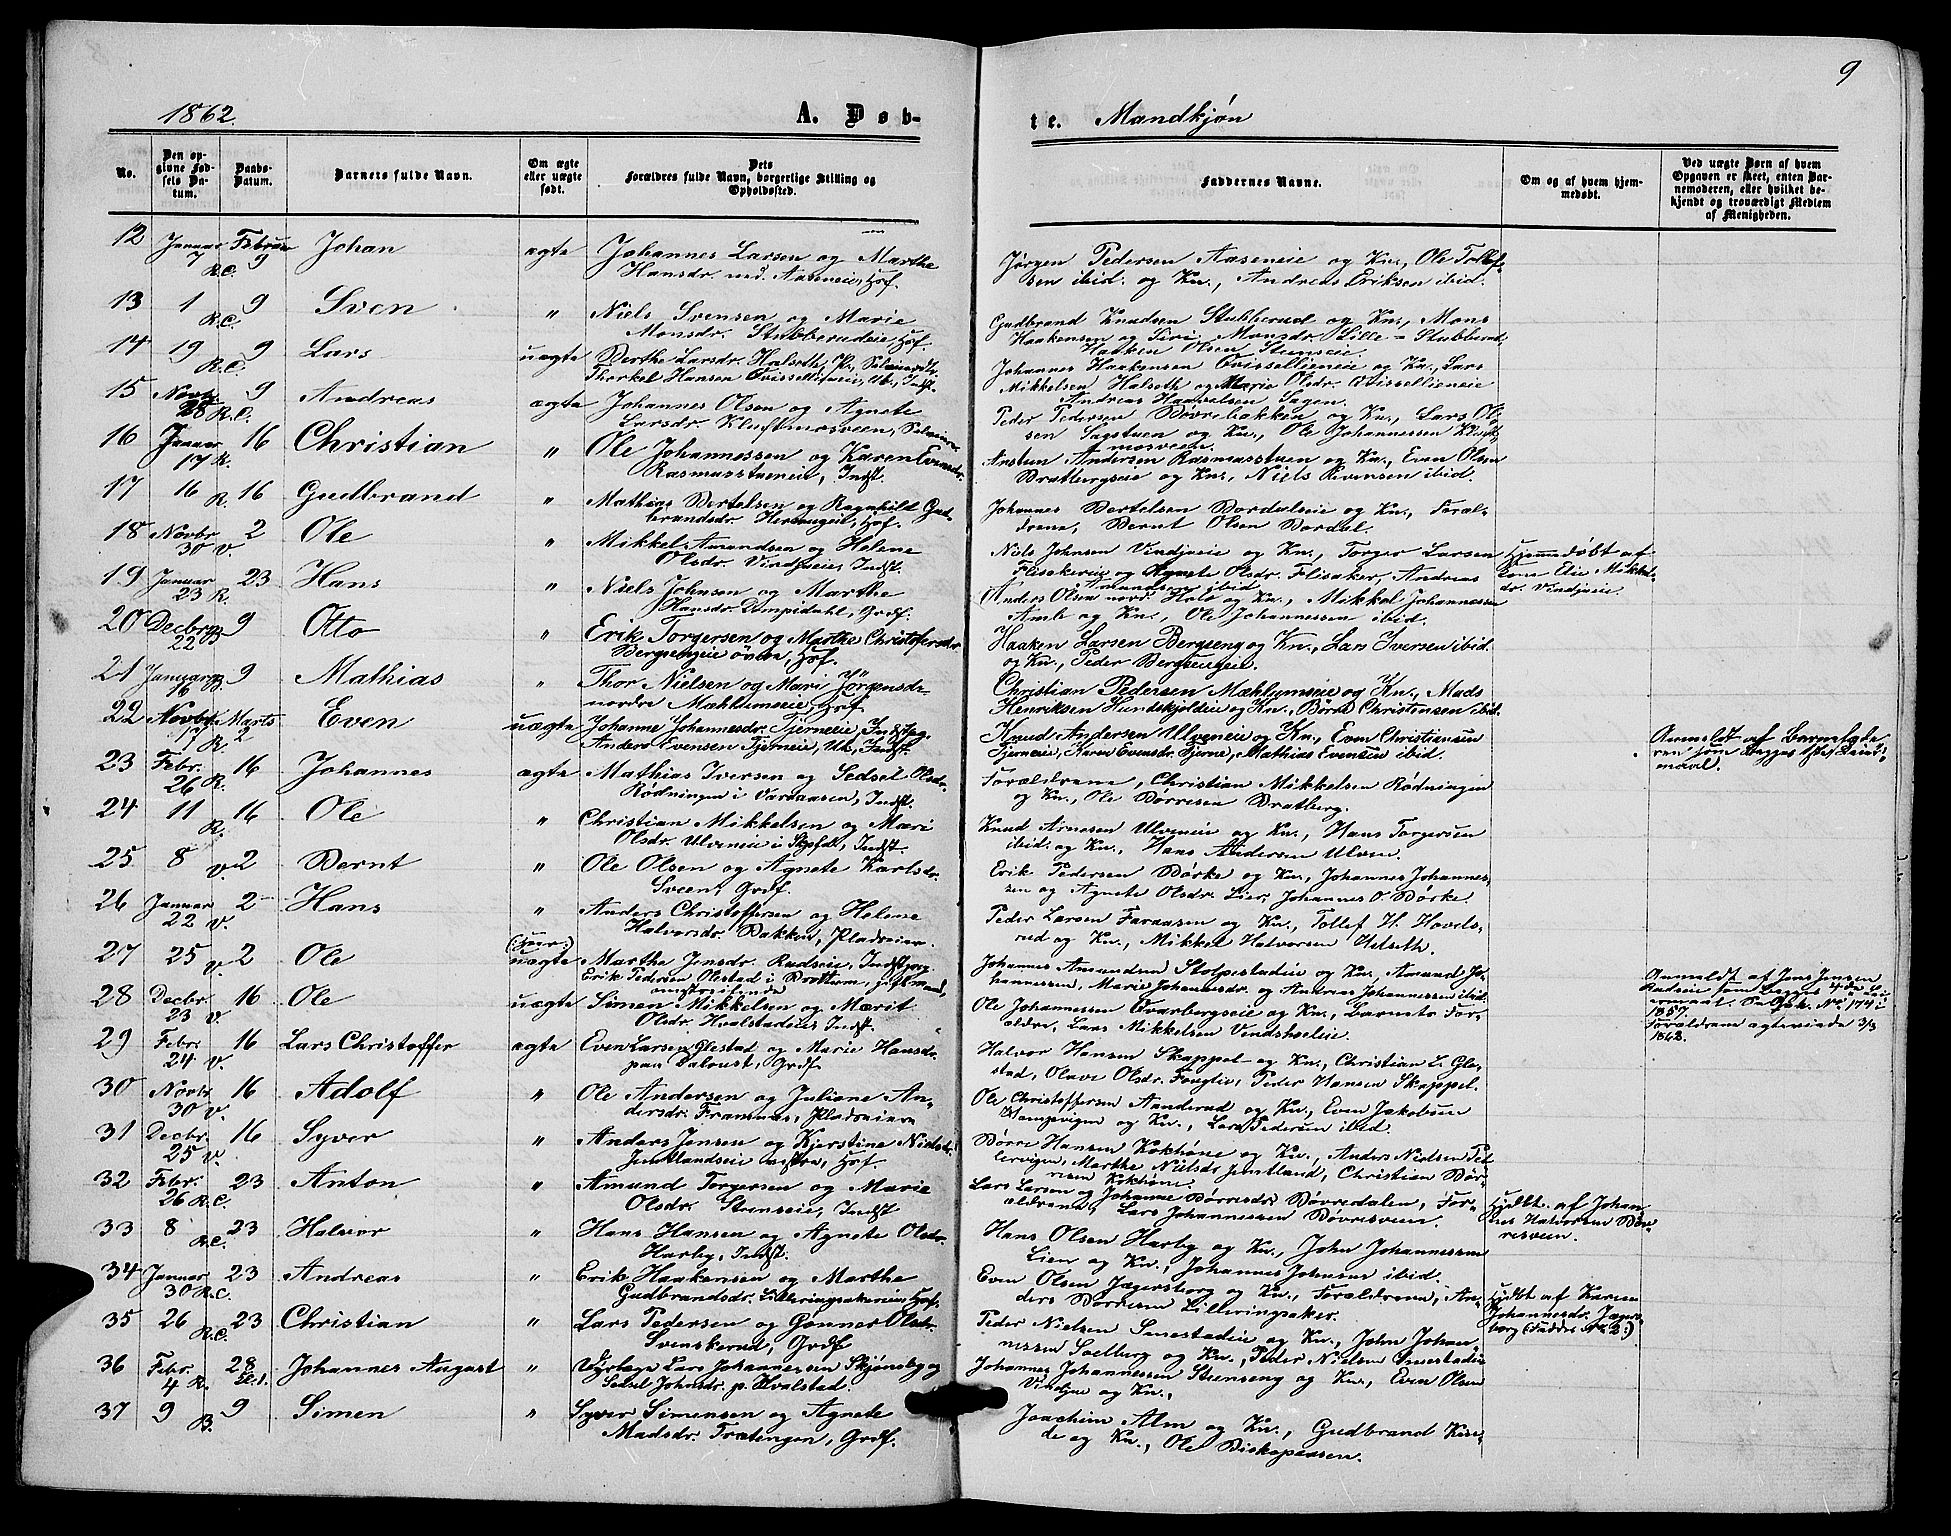 9
1862.
A. Døb-
te. Mandkjön
No.
Den op-
givne Fød-
sels Da-
tum.
Daabs-
Datum.
Barnets fulde Navn.
Om ægte
eller uægte
født.
Dets
Forældres fulde Navn, borgerlige Stilling og
Opholdssted.
Faddernes Navne.
Om og af hvem hjem-
medøbt.
Ved uægte Børn af hvem
Opgaven er skeet, enten Bar-
nemoderen, eller hvilket be-
kjendt og troværdigt Medlem
af Menigheden.
12 Januar 7 R.C. Februar 9 Johan ægte Johannes Larsen og Marthe
Hansdr. Aaseneie, Hsf.
Jörgen Pedersen Aaseneie og Kn., Ole Tollef-
sen ibid. og Kn., Andreas Eriksen ibid.
13 1 R.C. 9 Sven " Niels Svensen og Marie
Monsdr. Stubberudeie, Hsf.
Gudbrand Knudsen Stubberud og Kn., Mons
Haakensen og Siri Monsdr. Lille-Stubberud,
Haaken Olsen Stenseie.
14 19 R.C. 9 Lars uægte Berthe Larsdr. Halseth, Pe.
Thorkel Hansen Ovissellieneie, Uk., Indst.
Johannes Haakensen Ovissellieneie og Kn., Lars
Mikkelsen Halseth og Marie Olsdr. Ovissellieneie
Andreas Haavelsen Sagen.
15 Novbr. 28 R.C. 9 Andreas ægte Johannes Olsen og Agnete
Larsdr. Kluftmosveen, Selveiere
Peder Pedersen Bövrebakken og Kn., Lars Ol-
sen Sagstuen og Kn., Ole Johannessen Kluft-
mosveen.
16 Januar 17 R. 16 Christian " Ole Johannessen og Karen Evensdr.
Rasmusstueneie, Indst.
Amten Andersen Rasmusstuen og Kn., Even Olsen
Bratbergseie og Kn., Niels Evensen ibid.
17 16 R. 16 Gudbrand " Mathias Bertelsen og Ragnhild Gud-
brandsdr. Hersougeie, Hsf.
Johannes Bertelsen Dordaleie og Kn., Foræl-
drene, Bernt Olsen Dordal.
18 Novbr. 30 V. 2 Ole " Mikkel Amundsen og Helene
Olsdr. Vindjueie, Indst.
Niels Johnsen Vindjueie og Kn., Torger Larsen
Flisakereie og Agnete Olsdr. Flisaker, Andreas
Amundsen ibid.
Hjemmedöbt af
Elie Mikkels-
dr. Vindjueie.
19 Januar 23 R. 23 Hans " Niels Johnsen og Marthe
Hansdr. Dempedahl, Grdf.
Anders Olsen nord. Holo og Kn., Mikkel Johannesen
Amb og Kn., Ole Johannessen ibid.
20 Decbr. 22 B 9 Otto " Erik Torgersen og Marthe Christofersdr.
Bergsengeie övre, Hsf.
Haaken Larsen Bergseng og Kn., Lars Iversen ibid.
og Kn., Peder Bergsengeie.
21 Januar 16 B. 9 Mathias " Thor Nielsen og Mari Jörgensdr.
nordre Mæhlumseie, Hsf.
Christian Pedersen Mæhlumseie og Kn., Mads
Henriksen Hundskjoldeie og Kn., Börre Christensen ibid.
22 Novbr. 17 R. Marts 2 Even uægte Johanne Johannesdr. Tjerneeie, Indst.
Anders Evensen Tjerneie, Uk., Indst.
Knud Andersen Ulveneie og Kn., Even Christiansen
Tjerneie, Karen Evensdr. Tjerne, Mathias Evensen ibid.
Anmeldt af Barnefade-
ren som Begges første Leier-
maal.
23 Febr. 26 R. 16 Johannes ægte Mathias Iversen og Sedsel Olsdr.
Rödningen i Vardaasen, Indst.
Forældrene, Christian Mikkelsen Rödningen
og Kn., Ole Börresen Bratberg.
24 11 R. 16 Ole " Christian Mikkelsen og Mari
Olsdr. Ulveneie i Skjefdl., Indst.
Knud Arnesen Ulveneie og Kn., Hans Torgersen
ibid. og Kn., Hans Andersen Ulven.
25 8 V. 2 Bernt " Ole Olsen og Agnete Karlsdr.
Sveen, Grdf.
Erik Pedersen Börke og Kn., Johannes Johannes-
sen og Agnete Olsdr. Lier, Johannes O. Börke.
26 Januar 22 V. 2 Hans " Anders Christoffersen og Helene
Halvorsdr. Bakken, Pladseier.
Peder Larsen Faraasen og Kn., Tollef H. Hovels-
rud og Kn., Mikkel Halvorsen Helseth.
27 25 V. 2 Ole uægte Marthe Jensdr. Rudseie, Indst.
Erik Pedersen Olestad i Brottum, gift mand,
omstreifende
Johannes Amundsen Stolpestadeie og Kn., Amund Jo-
hannessen, Marie Johannesdr. og Andreas Johannessen ibid.
Anmeldt af Jens Jensen
Rudseie som Begges 4de Lei-
ermaal. No 174 i
1857.
28 Decbr. 23 V. 16 Ole uægte Simen Mikkelsen og Marit
Olsdr. Hvalstadeie, Indst.
Ole Johannessen Overbergseie og Kn., Barnets For-
ældre, Lars Mikkelsen Vindsholeie.
Forældrene ægteviede 3/3
1862.
29 Febr. 24 V. 16 Lars Christoffer ægte Even Larsen Glestad og Marie Hansdr.
paa Daloust, Grdf.
Halvor Hansen Skappel og Kn., Christian L. Gle-
stad, Olave Olsdr. Fouglie, Peder Hansen Skappel.
30 Novbr. 30 V. 16 Adolf " Ole Andersen og Juliane An-
dersdr. Framnæs, Pladseiere
Ole Christoffersen Aanderud og Kn., Even Jakobsen
Kampevigen og Kn., Lars Pedersen ibid.
31 Decbr. 25 V. 16 Syver " Anders Jensen og Kjerstine Nielsdr.
Jemtlandseie vestre, Hsf.
Börre Hansen Kokhöne og Kn., Anders Nielsen Tel-
lervigen, Marthe Nielsdr. Jemtland, Christian Bör-
resen Kokhöne.
32 Febr. 26 R.C. 23 Anton " Amund Torgersen og Marie
Olsdr. Stenseie, Indst.
Lars Larsen og Johanne Börresdr. Bövredalen, For-
ældrene, Lars Johannessen Bövresveen.
Hjdbt. af Johan-
nes Halvorsen Böv-
resveen.
33 8 R.C. 23 Halvor " Hans Hansen og Agnete Olsdr.
Harby, Indst.
Hans Olsen Harby og Kn., John Johannessen
Lien og Kn., Johannes Johnsen ibid.
34 Januar 30 R.C. 23 Andreas " Erik Haakensen og Marthe
Gudbrandsdr. Lilleringsakereie, Hsf.
Even Olsen Jægersborg og Kn., Forældrene, An-
ders Börresen Lilleringsaker.
Hjdbt af Karen
Johannesdr. Jægers-
borg (Fadder No 2.)
35 26 R.C. 23 Christian " Lars Pedersen og Gönner Olsdr.
Svenskerud, Grdf.
Peder Nielsen Smestadeie og Kn., John Johan-
nessen Soelberg og Kn., Peder Nielsen Smestadeie
36 Febr. 4 R. 28 Johannes August " Lars Johannessen Skjönsby og
Sedsel Johnsdr. p. Hvalstad.
Johannes Johannessen Stenseng og Kn., Even Olsen
Vindjue og Kn.,
37 9 B. 9 Simen " Syver Simensen og Agnete
Madsdr. Frætengen, Grdf.
Joachim Alm og Kn., Gudbrand Kise-
de og Kn., Ole Biskopaasen.